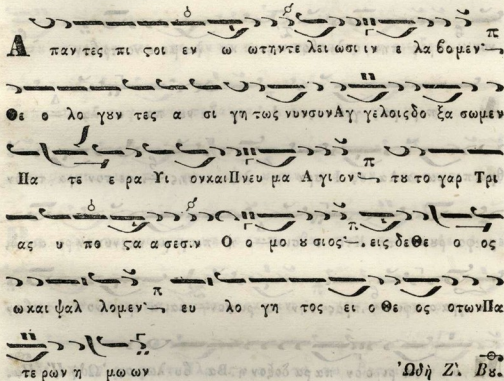 Α παν τες πι ϛοι εν ω ωτηντε λει ωσι ιν ε λα βομεν π
Θε ο λο γουν τες α σι γη τως νυνσυνΑγ γελοιςδο ξα σωμεν
Πα τε ε ρα Υι ονκαιΠνευ μα Α γι ον π του το γαρ Τρι
ας υ πο ϛα α σεσιν Ο ο μο ου σιος π εις δεΘε ο ος
ω και ψαλ λομεν π ευ λο γη τος ει ο Θε ος οτωνΠα
τε ρων η μω ων Ὠδὴ Ζ'. Βου.